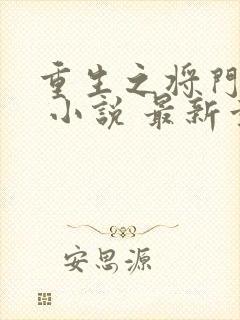 重生之将門
小說 最新
安思源